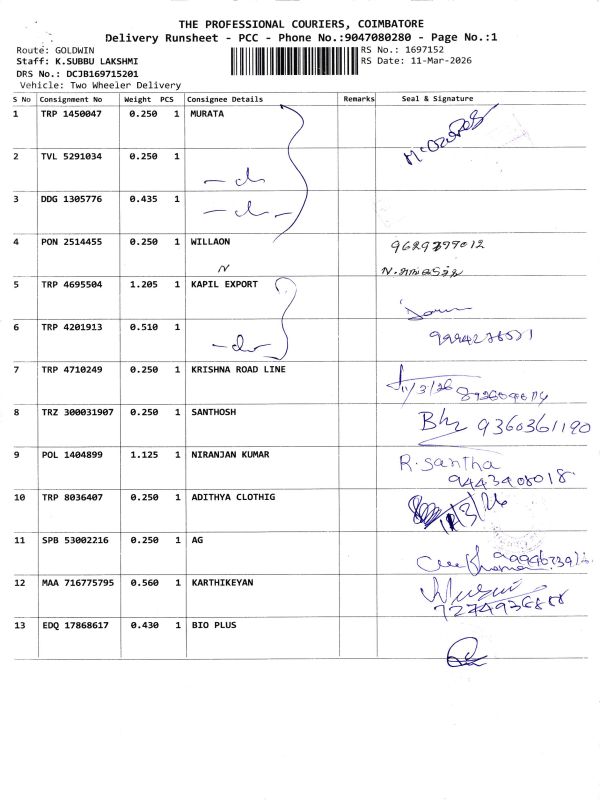 THE PROFESSIONAL COURIERS, COIMBATORE
Delivery Runsheet - PCC - Phone No.:9047080280 - Page No.:1
Route: GOLDWIN
RS No.: 1697152
Staff: K.SUBBU LAKSHMI
RS Date: 11-Mar-2026
DRS No.: DCJB169715201
Vehicle: Two Wheeler Delivery
S No Consignment No Weight PCS Consignee Details Remarks Seal & Signature
1 TRP 1450047 0.250 1 MURATA
2 TVL 5291034 0.250 1
- do
3 DDG 1305776 0.435 1
- do -
4 PON 2514455 0.250 1 WILLAON 9629799012
N
5 TRP 4695504 1.205 1 KAPIL EXPORT
6 TRP 4201913 0.510 1
- do -
7 TRP 4710249 0.250 1 KRISHNA ROAD LINE
11/3/26
8 TRZ 300031907 0.250 1 SANTHOSH
9360361190
9 POL 1404899 1.125 1 NIRANJAN KUMAR R. Santha
9443408018
10 TRP 8036407 0.250 1 ADITHYA CLOTHIG
11/3/26
11 SPB 53002216 0.250 1 AG
12 MAA 716775795 0.560 1 KARTHIKEYAN
13 EDQ 17868617 0.430 1 BIO PLUS